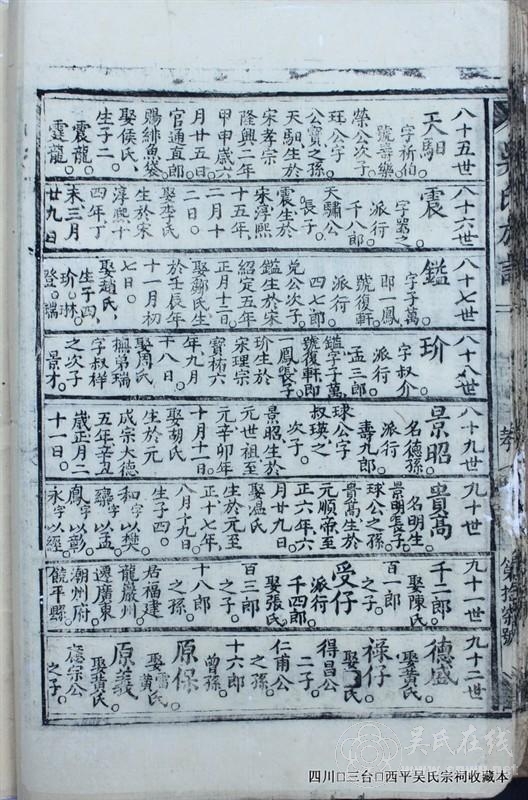 吳氏族譜
八十五世
天馹
字祈伯。
號壽樂
榮公次子。
玨公字
公寶之孫。
天馹生於
宋孝宗
隆興二年
甲申歲六
月廿五日。
官通直郎
賜緋魚袋。
娶侯氏。
生子二。
震龍。
霆龍。
八十六世
震
派行
千八郎。
天驌公
長子。
震生於
宋淳熙
十五年,
二月十
二日。
娶李氏。
生於宋
淳熙十
四年丁
未三月
廿九日
八十七世
鑑
字子萬
即一鳳
號復軒。
派行
四七郎
兌公次子。
鑑生於宋
紹定五年
正月十二。
娶鄺氏生
於壬辰年
十一月初
七日。
娶趙氏
生子四。
玠。琳。
登。瑞
八十八世
玠
字叔介
派行
孟三郎
鑑字子萬,
號復軒即
一鳳長子
玠生於
宋理宗
寶祐六
年九月
十八日。
娶周氏
撫弟瑞
字叔祥
之次子
景才。
八十九世
景昭
名德孫
派行
壽九郎
球公字
叔瑛之
次子。
景昭生於
元世祖至
元辛卯年
十月十一
娶胡氏
生於元
成宗大德
五年辛丑
歲正月二
十一日。
九十世
貴高
名明生
景明長子。
球公之孫。
貴高生於
元順帝至
正六年六
月廿九日。
娶溫氏
生於元至
正十七年,
八月十九日。
生子四。
和字以樊
字以孟
鳳字以彰
永字以經
九十一世
千二郎
娶陳氏
百一郎
之子。
受仔
派行
千四郎
娶張氏
百三郎
之子。
十八郎
之孫。
居福建
龍巖州
遷廣東
潮州府
饒平縣
九十二世
德盛
娶黃氏
祿仔
娶氏
得昌公
二子
仁甫公
之孫。
十六郎
曾孫
原保
娶雷氏
原義
娶黃氏
應宗公
之子。
吴氏在线
四川□三台□西平吴氏宗祠收藏本